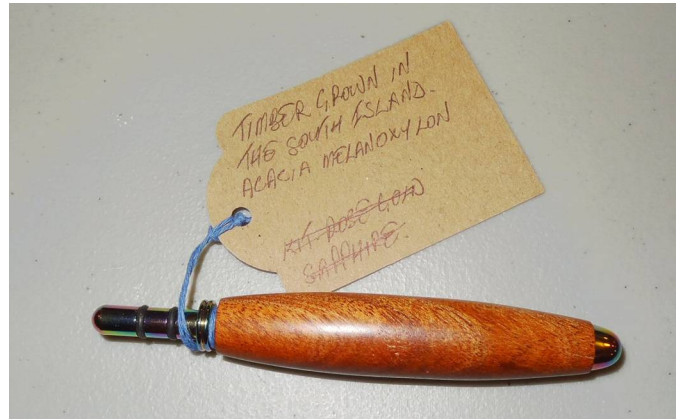 TIMBER GROWN IN
THE SOUTH ISLAND.
ACACIA MELANOXYLON
KIT. ROSE GOLD
SAPPHIRE.